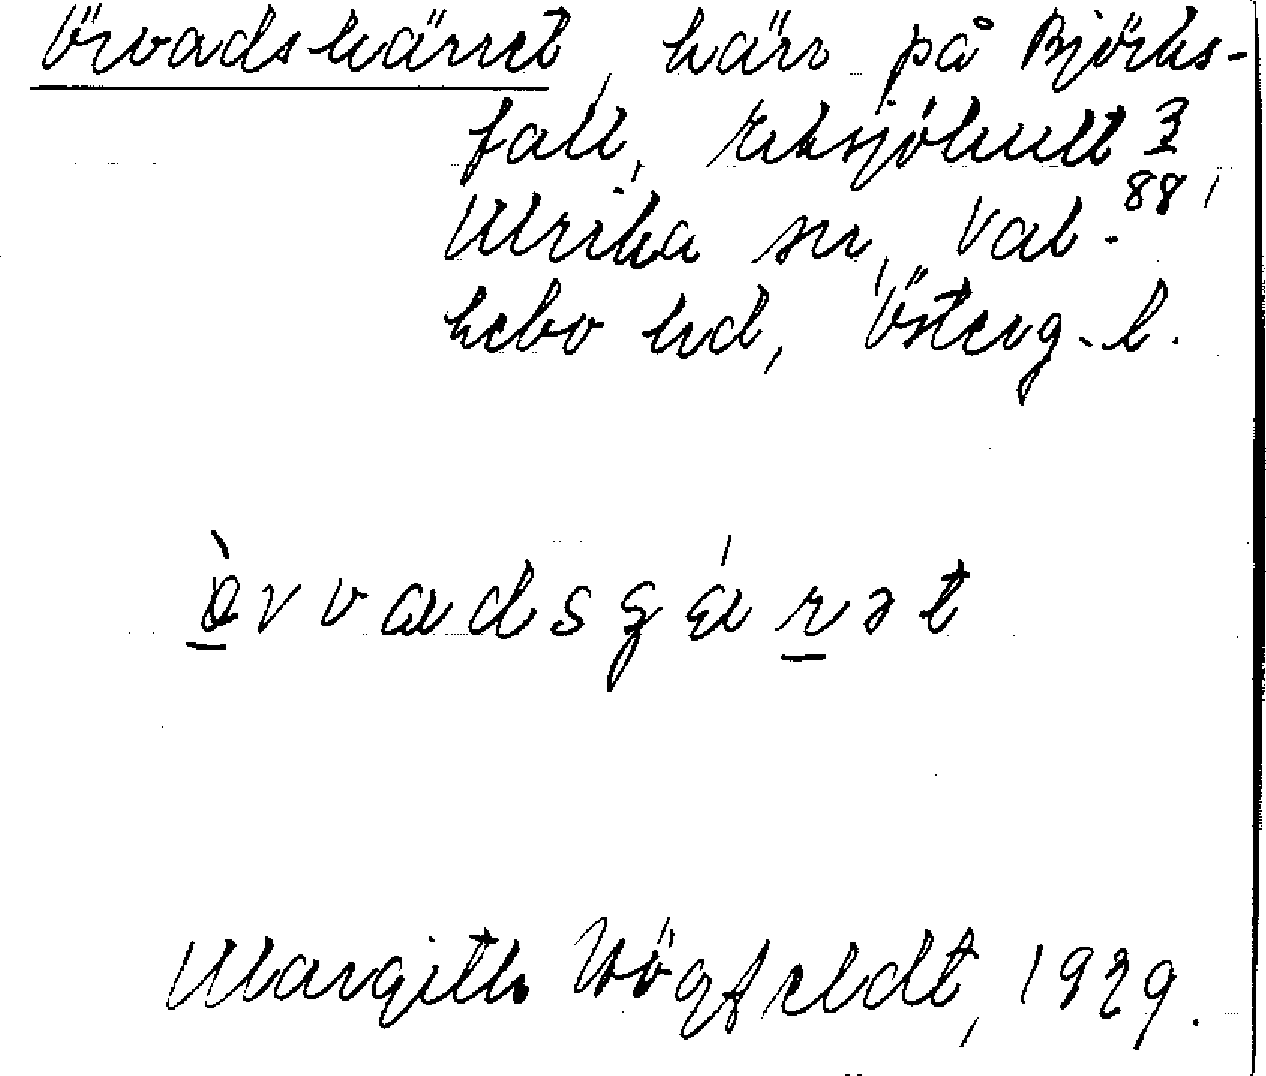 Örvadskärret, kärr på Björks-
fall, Eksjöhult 3/88,
Ulrika sn, Val-
kebo hd, Österg. l.
ȯ̀rvadsʒárət
Margith Högfeldt, 1929.